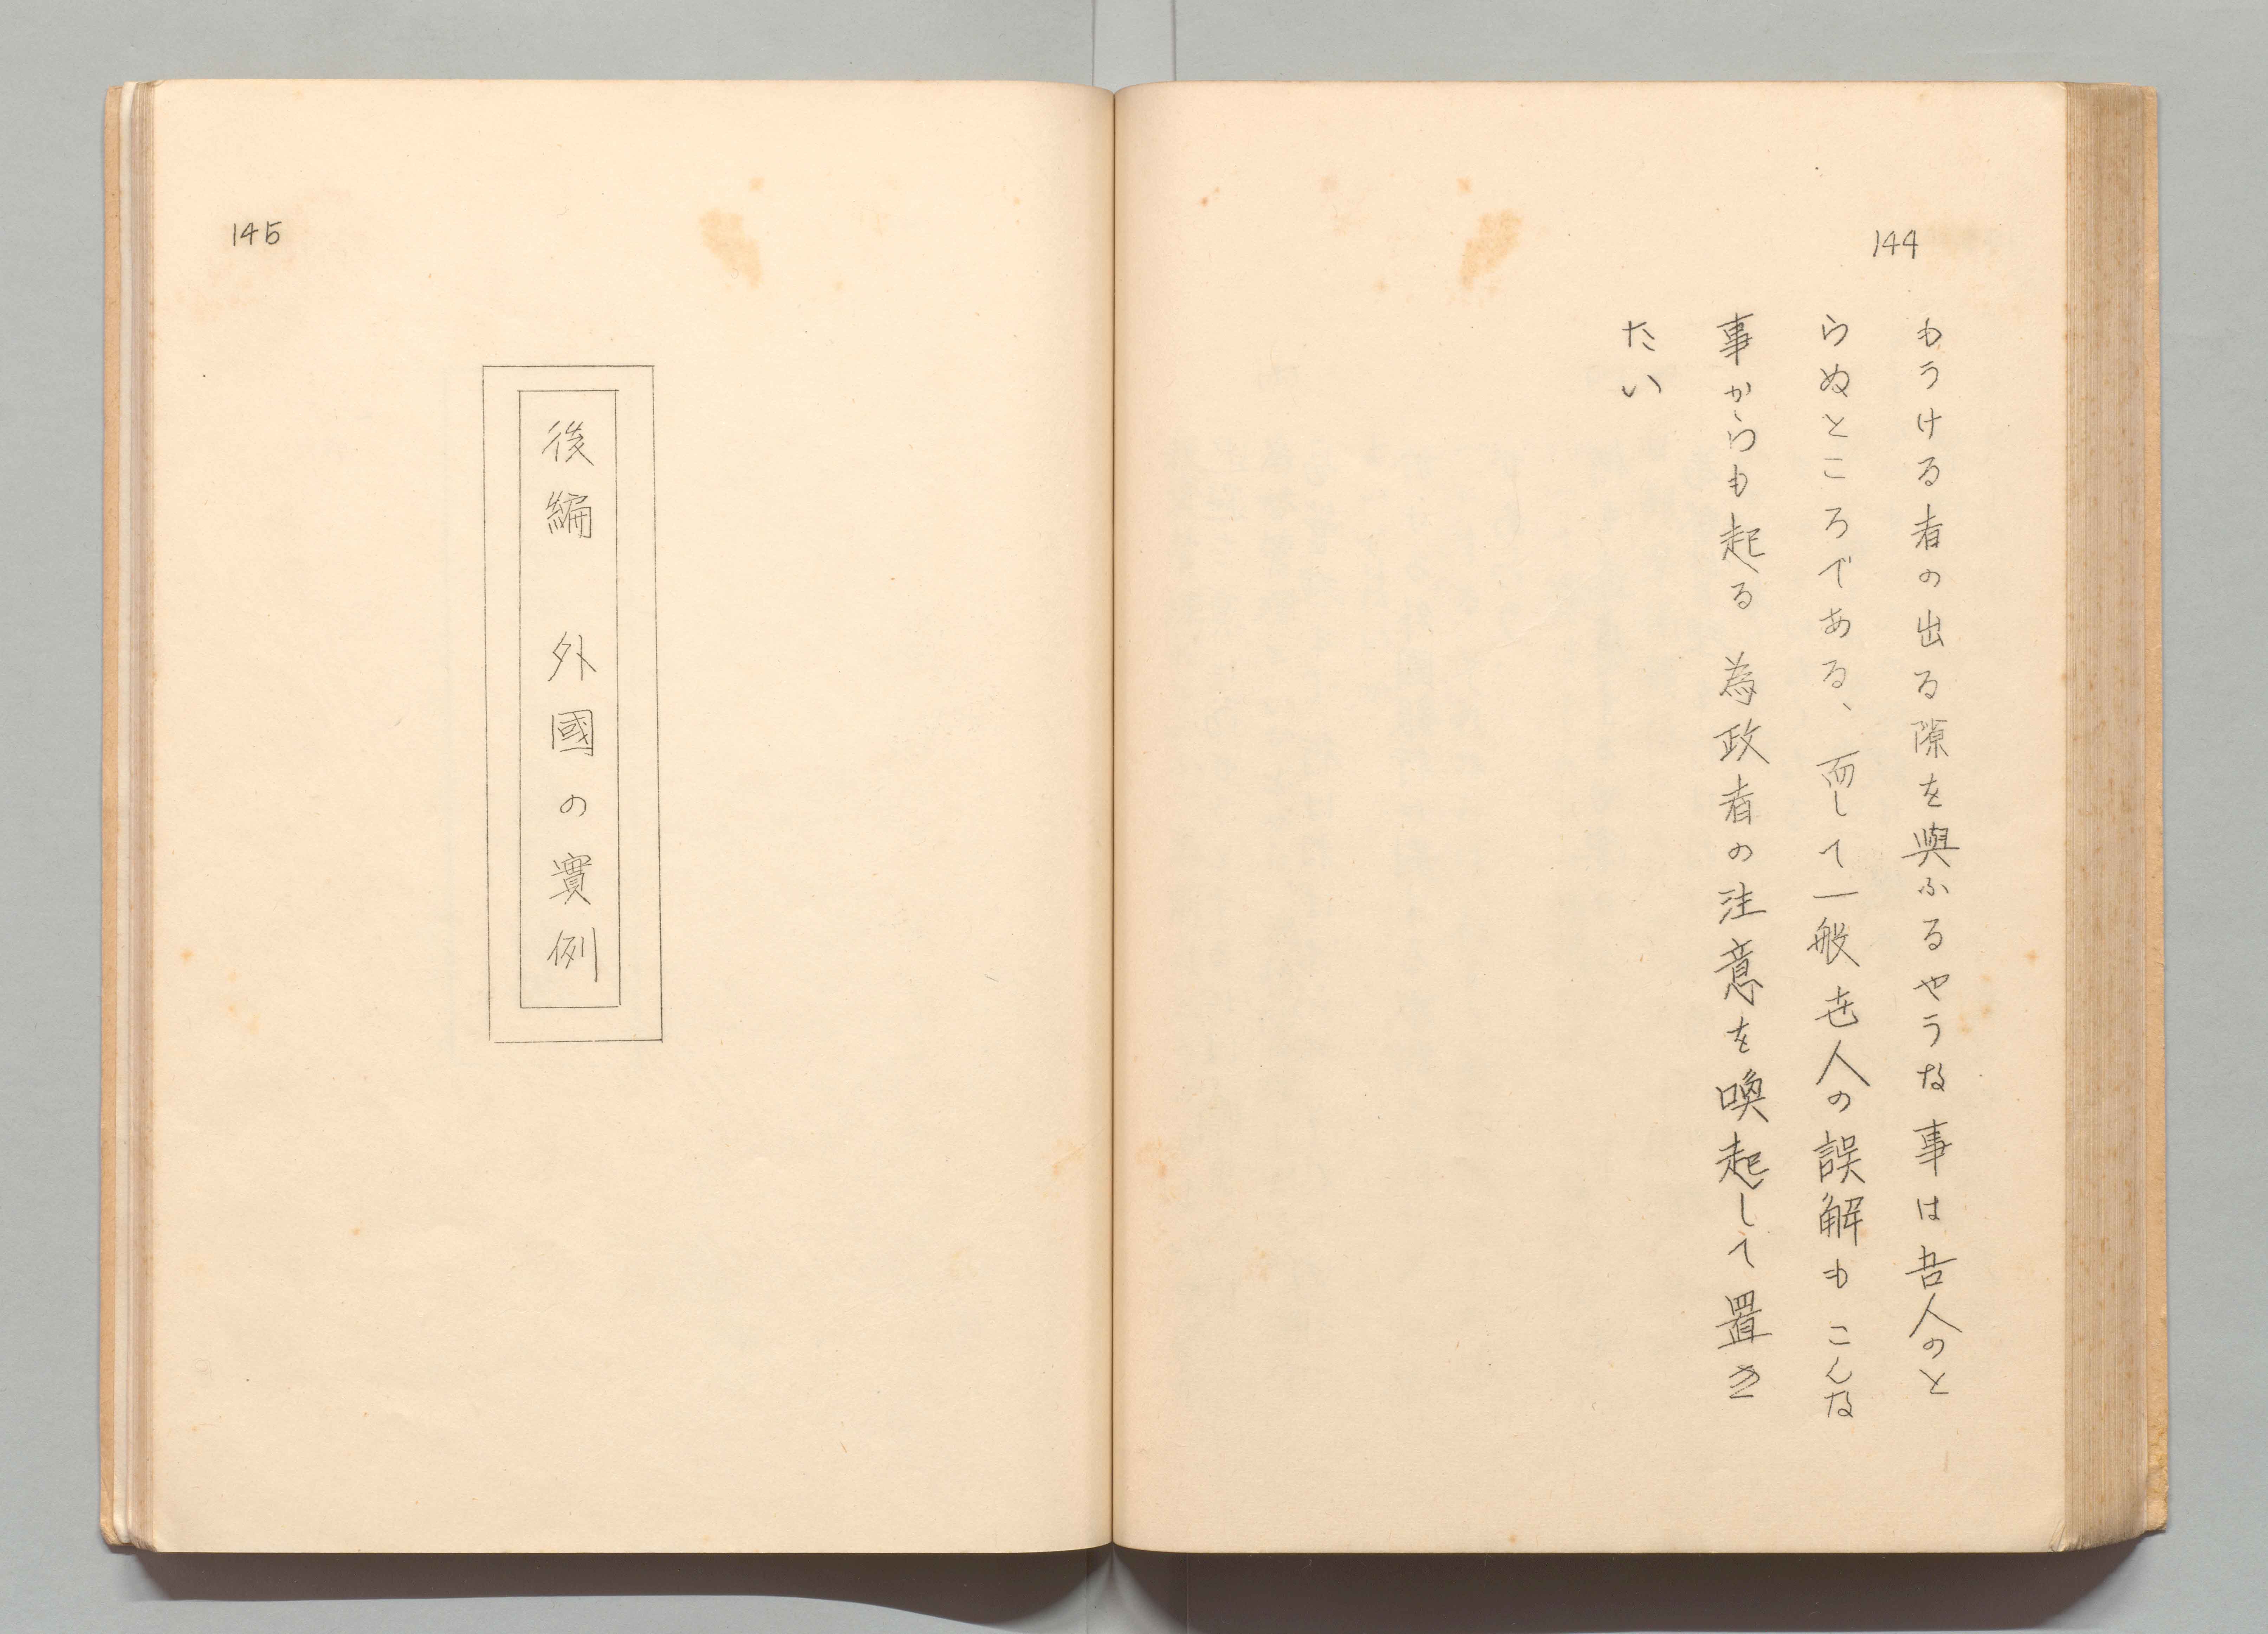 144
もうける者の出る隙を與ふるやうな事は吾人のと
らぬところである、而して一般世人の誤解もこんな
事からも起る 為政者の注意を喚起して置き
たい
145
後編 外國の實例